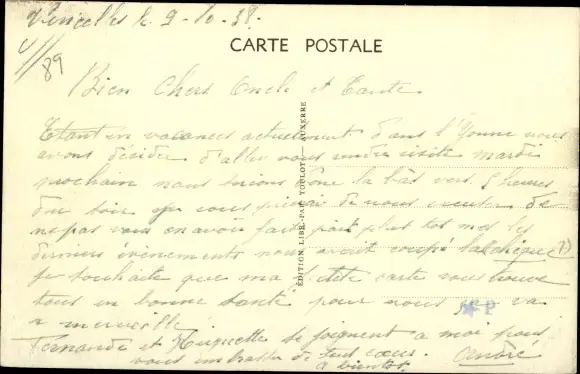 Vincelles le 9-10-38.
CARTE POSTALE
89
Bien Chers Oncle et Tante.
Etant en vacances actuellement dans l'Yonne nous
avons décider d'aller vous rendre visite mardi
prochain nous serions donc la bàs vers 5 heures
du soir
ne pas vous en avoir fait part plus tot mes les
derniers évènements nous avait coupé la chique (?)
Je souhaite que ma petite carte vous trouve
tous en bonne santé pour nous sa va
a merveille.
Fernande et Huguette se joignent a moi pour
vous embrasser de tout cœur. André
a bientot
EDITION LIBR.-PAP. TOULOT - AUXERRE
P